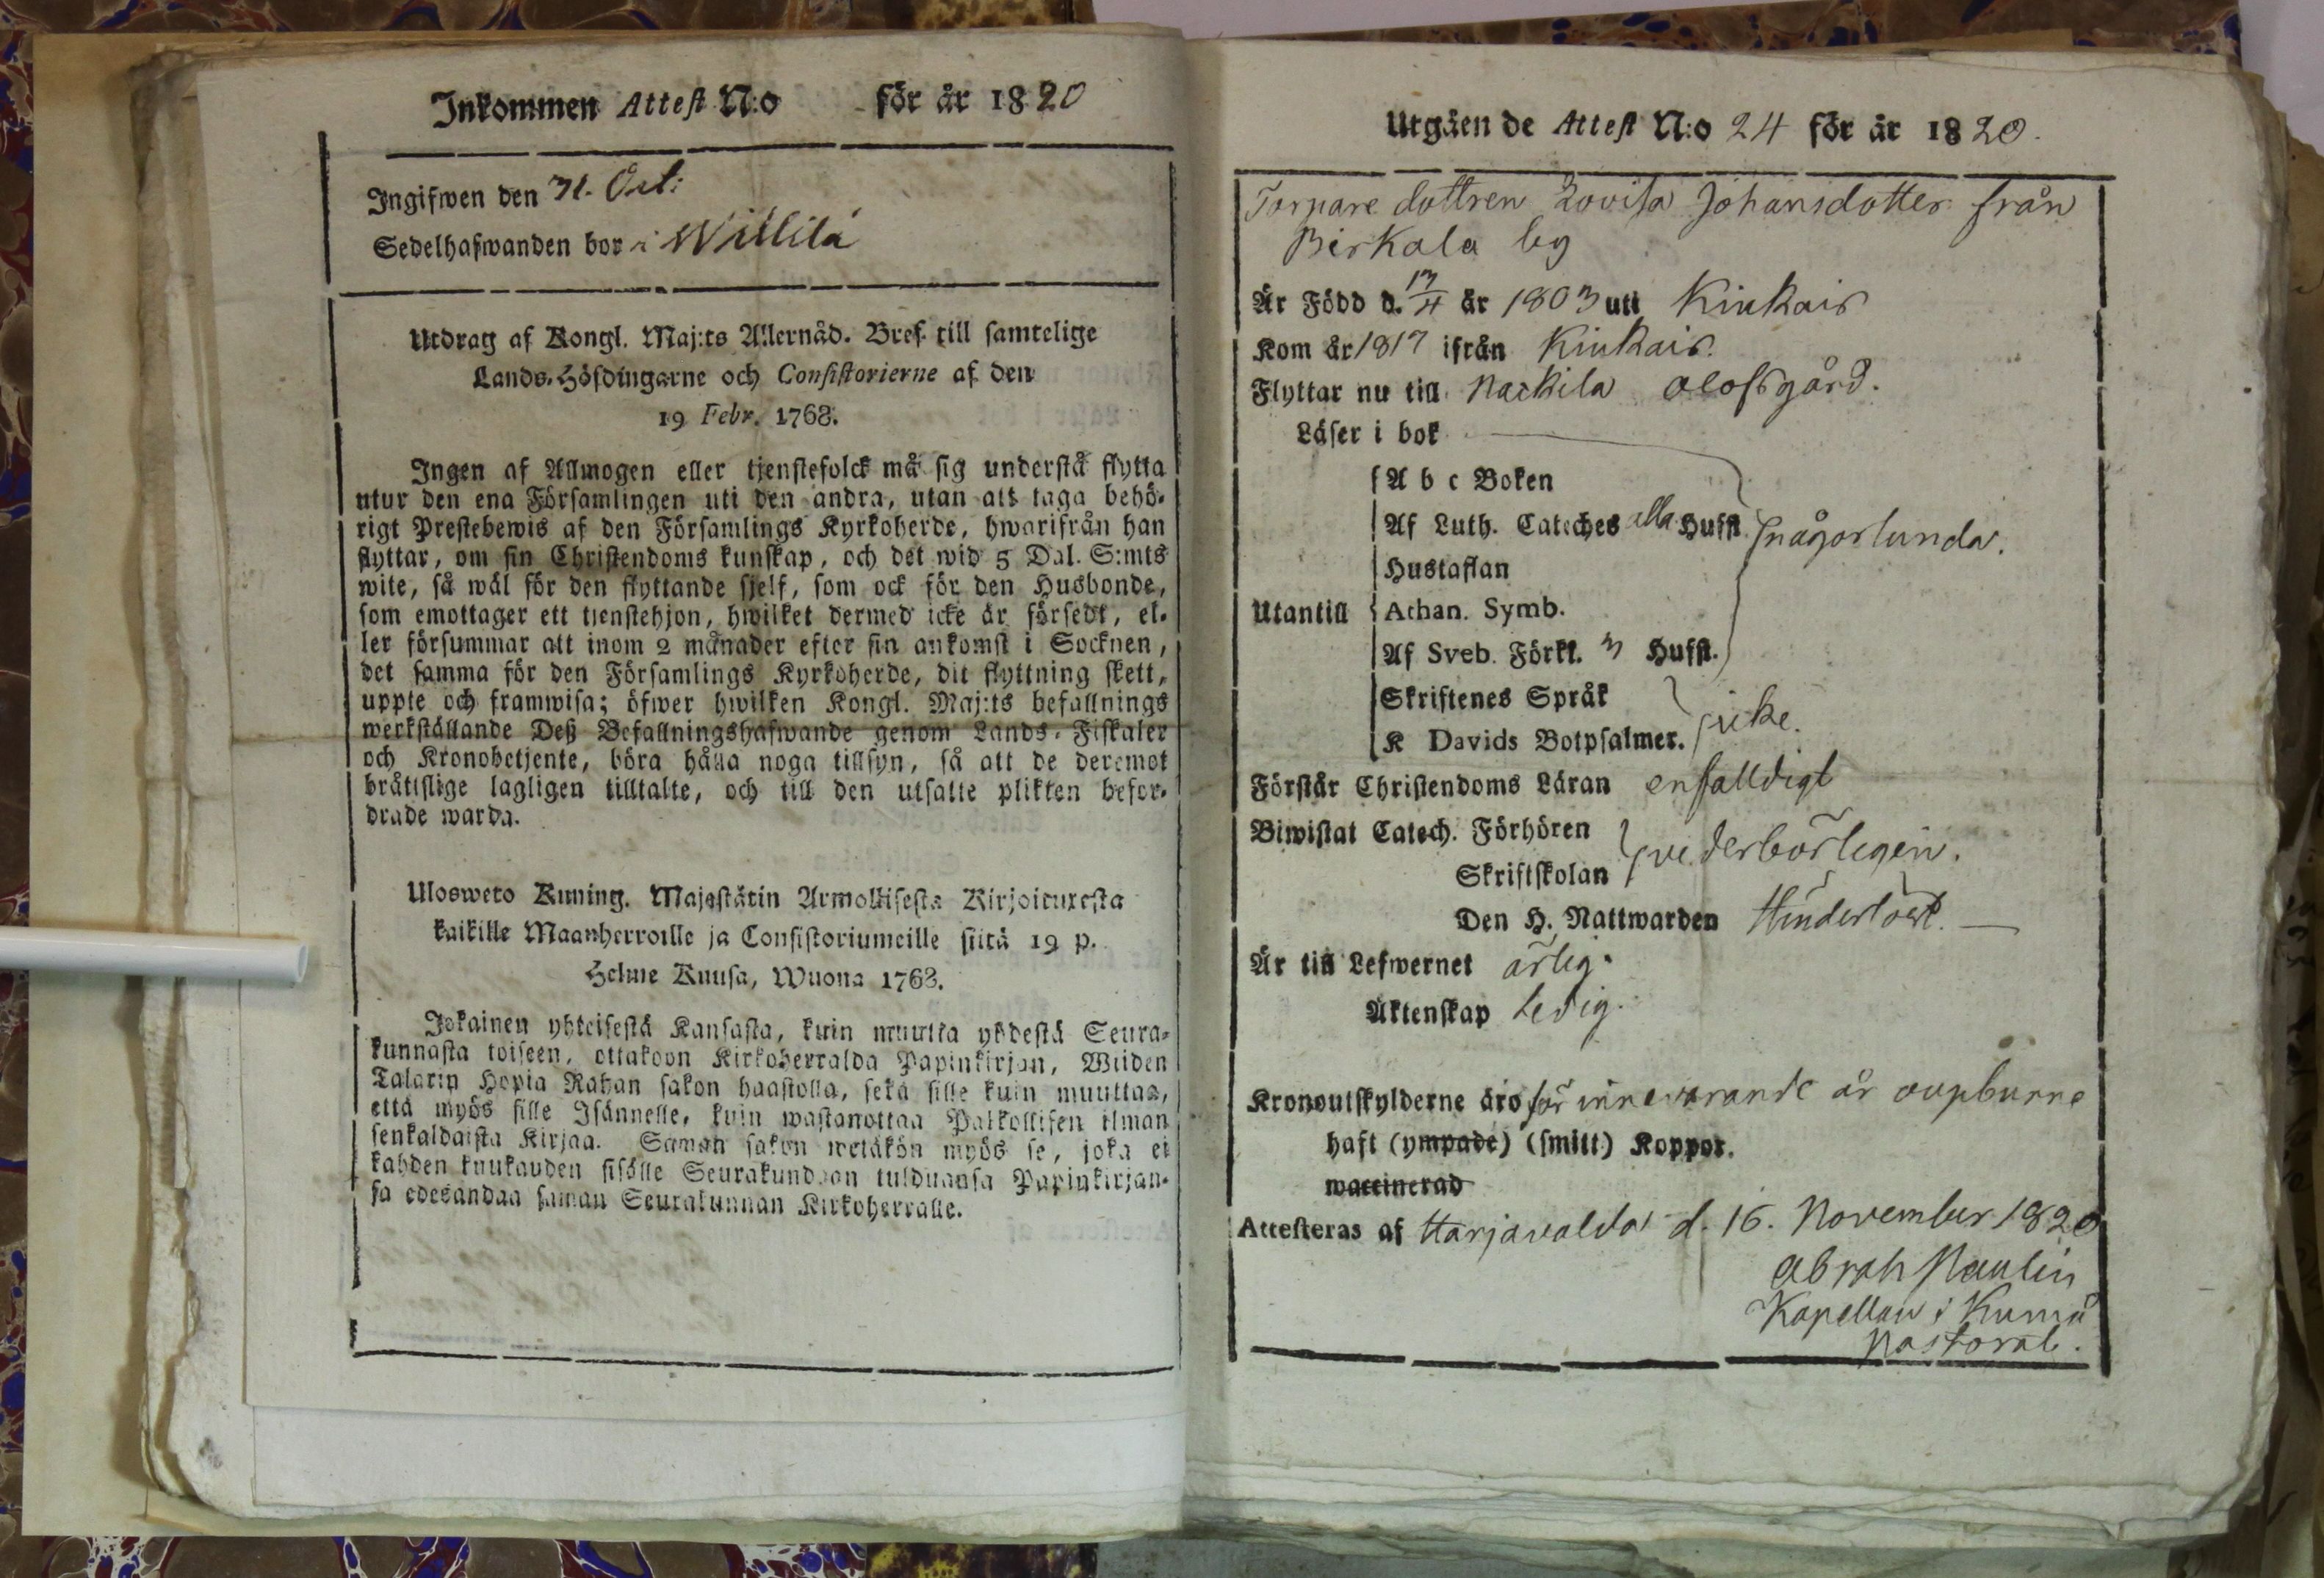 Inkommen Attest N:o för år 1820
Ingifwen den 31. Oct:
Sedelhafwanden bor i Willilä
Utdrag af Kongl. Maj:ts Allernåd. Bref till samtelige
Lands-Höfdingarne och Consistorierne af den
19 Febr. 1768.
Ingen af Allmogen eller tjenstefolck må sig understå flytta
utur den ena Församlingen uti den andra, utan att taga behö-
rigt Prestebewis af den Församlings Kyrkoherde, hwarifrån han
flyttar, om sin Christendoms kunskap, och det wid 5 Dal. S:mts
wite, så wäl för den flyttande sjelf, som ock för den Husbonde,
som emottager ett tjenstehjon, hwilket dermed icke är försedt, el-
ler försummar att inom 2 månader efter sin ankomst i Socknen,
det samma för den Församlings Kyrkoherde, dit flyttning skett,
uppte och framwisa; öfwer hwilken Kongl. Maj:ts befallnings
werkställande Deß Befallningshafwande genom Lands-Fiskaler
och Kronobetjente, böra hålla noga tillsyn, så att de deremot
bråttslige lagligen tilltalte, och till den utsatte plikten befor-
drade warda.
Ulosweto Kuning. Majestätin Armollisesta Kirjoituxesta
kaikille Maanherroille ja Consistoriumeille siitä 19 p.
Helme Kuusa, Wuona 1768.
Jokainen yhteisestä Kansasta, kuin muutta yhdestä Seura-
kunnasta toiseen, ottakoon Kirkoherralda Papinkirjan, Wiiden
Talarin Hopia Rahan sakon haastolla, sekä sille kuin muuttaa,
että myös sille Isännelle, kuin wastanottaa Palkollisen ilman
senkaldaista Kirjaa. Saman sakon wetäkön myös se, joka ei
kahden kuukauden sisälle Seurakundaan tulduansa Papinkirjan-
sa edesandaa saman Seurakunnan Kirkoherralle.
Utgåen de Attest N:o 24 för år 1820.
Torpare dottren Lovisa Johansdotter från
Birkala by
Är Född d. 13/4 år 1803 uti Kiukais
Kom år 1817 ifrån Kiukais.
Flyttar nu till Nackila Olofsgård.
Läser i bok
A b c Boken
Af Luth. Cateches alla Hufst. någorlunda.
Hustaflan
Utantill Athan. Symb.
Af Sveb. Förkl. 3 Hufst.
Skriftenes Språk
K Davids Botpsalmer. icke.
Förstår Christendoms Läran enfalldigt
Biwistat Catech. Förhören
Skriftskolan vederbörligen.
Den H. Nattwarden Hinderlöst.
Är till Lefwernet ärlig.
Äktenskap ledig.
Kronoutskylderne äro för innevarande år oupburne
haft (ympade) (smitt) Koppor.
waccinerad
Attesteras af Harjavalda d. 16. November 1820
Abrah Paulin
Kapellan i Kumå
Pastorat.